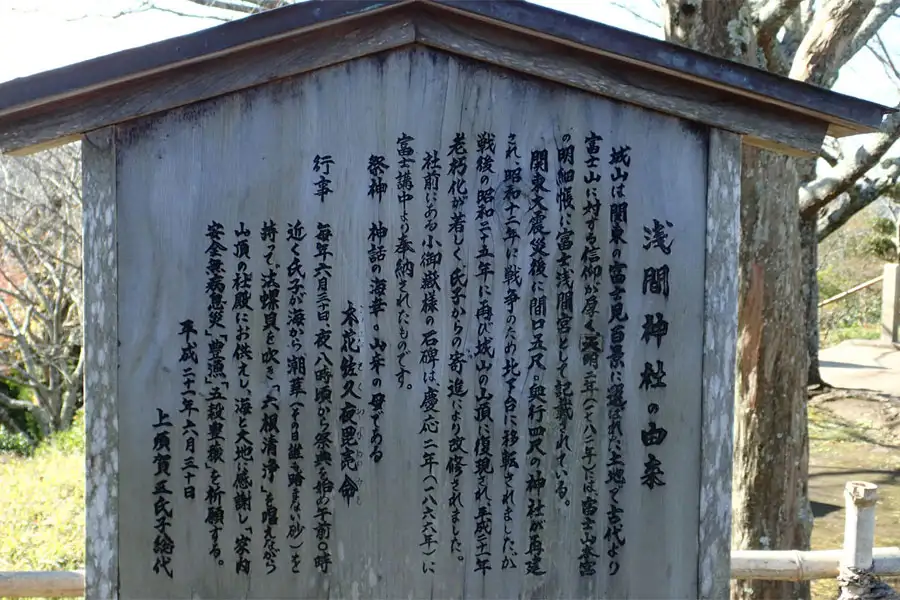 浅間神社の由来
城山は関東の富士見百景に選ばれた土地で古代より
富士山に対する信仰が厚く天明二年(一七八二年)には富士山本宮
の明細帳に富士浅間宮として記載されている。
関東大震災後に間口五尺。奥行四尺の神社が再建
され、昭和十二年に戦争のため北下台に移転されましたが
戦後の昭和二十五年に再び城山の山頂に復現され平成二十一年
老朽化が著しく氏子からの寄進により改修されました。
社前にある小御嶽様の石碑は、慶応二年(一八六六年)に
富士講中より奉納されたものです。
祭神 神話の海幸・山幸の母である
木花佐久夜毘売命
行事 毎年六月三十日夜八時頃から祭典を始め午前〇時
近く氏子が海から潮華(その日誰も踏まない砂)を
持って、法螺貝を吹き「六根清浄」を唱えながら
山頂の社殿にお供えし、海と大地に感謝し「家内
安全無病息災」「豊漁」「五穀豊穣」を祈願する。
平成二十一年六月三十日
上須賀五氏子総代